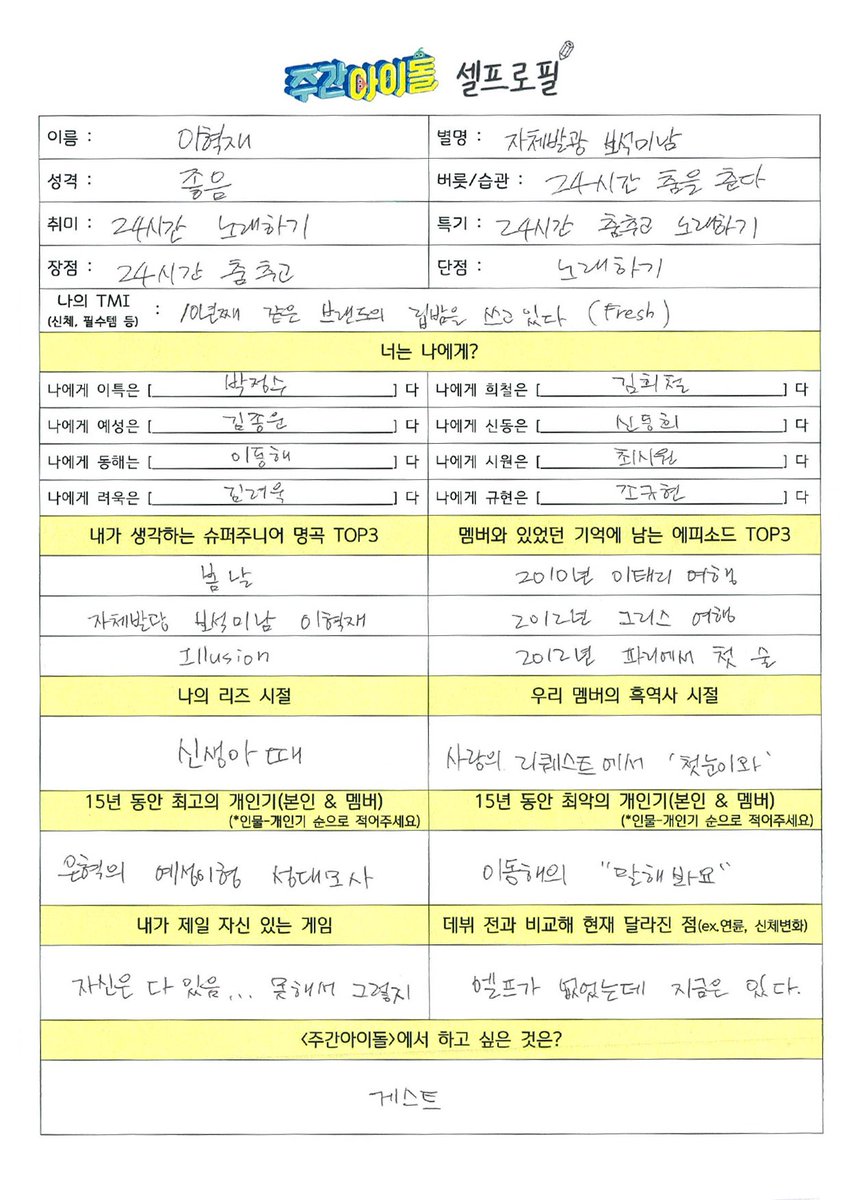 주간아이돌 셀프로필
이름 : 이혁재 별명 : 자체발광 보석미남
성격 : 좋음 버릇/습관 : 24시간 춤을 춘다
취미 : 24시간 노래하기 특기 : 24시간 춤추고 노래하기
장점 : 24시간 춤추고 단점 : 노래하기
나의 TMI (신체, 필수템 등) : 10년째 같은 브랜드의 립밤을 쓰고 있다 (Fresh)
너는 나에게?
나에게 이특은 [ 박정수 ] 다 나에게 희철은 [ 김희철 ] 다
나에게 예성은 [ 김종운 ] 다 나에게 신동은 [ 신동희 ] 다
나에게 동해는 [ 이동해 ] 다 나에게 시원은 [ 최시원 ] 다
나에게 려욱은 [ 김려욱 ] 다 나에게 규현은 [ 조규현 ] 다
내가 생각하는 슈퍼주니어 명곡 TOP3 멤버와 있었던 기억에 남는 에피소드 TOP3
봄날 2010년 이태리 여행
자체발광 보석미남 이혁재 2012년 그리스 여행
Illusion 2012년 파리에서 첫 술
나의 리즈 시절 우리 멤버의 흑역사 시절
신생아 때 사랑의 리퀘스트에서 '첫눈이와'
15년 동안 최고의 개인기(본인 & 멤버) 15년 동안 최악의 개인기(본인 & 멤버)
(*인물-개인기 순으로 적어주세요) (*인물-개인기 순으로 적어주세요)
은혁의 예성이형 성대모사 이동해의 "말해봐요"
내가 제일 자신 있는 게임 데뷔 전과 비교해 현재 달라진 점(ex.연륜, 신체변화)
자신은 다 있음... 못해서 그렇지 엘프가 없었는데 지금은 있다.
<주간아이돌>에서 하고 싶은 것은?
게스트